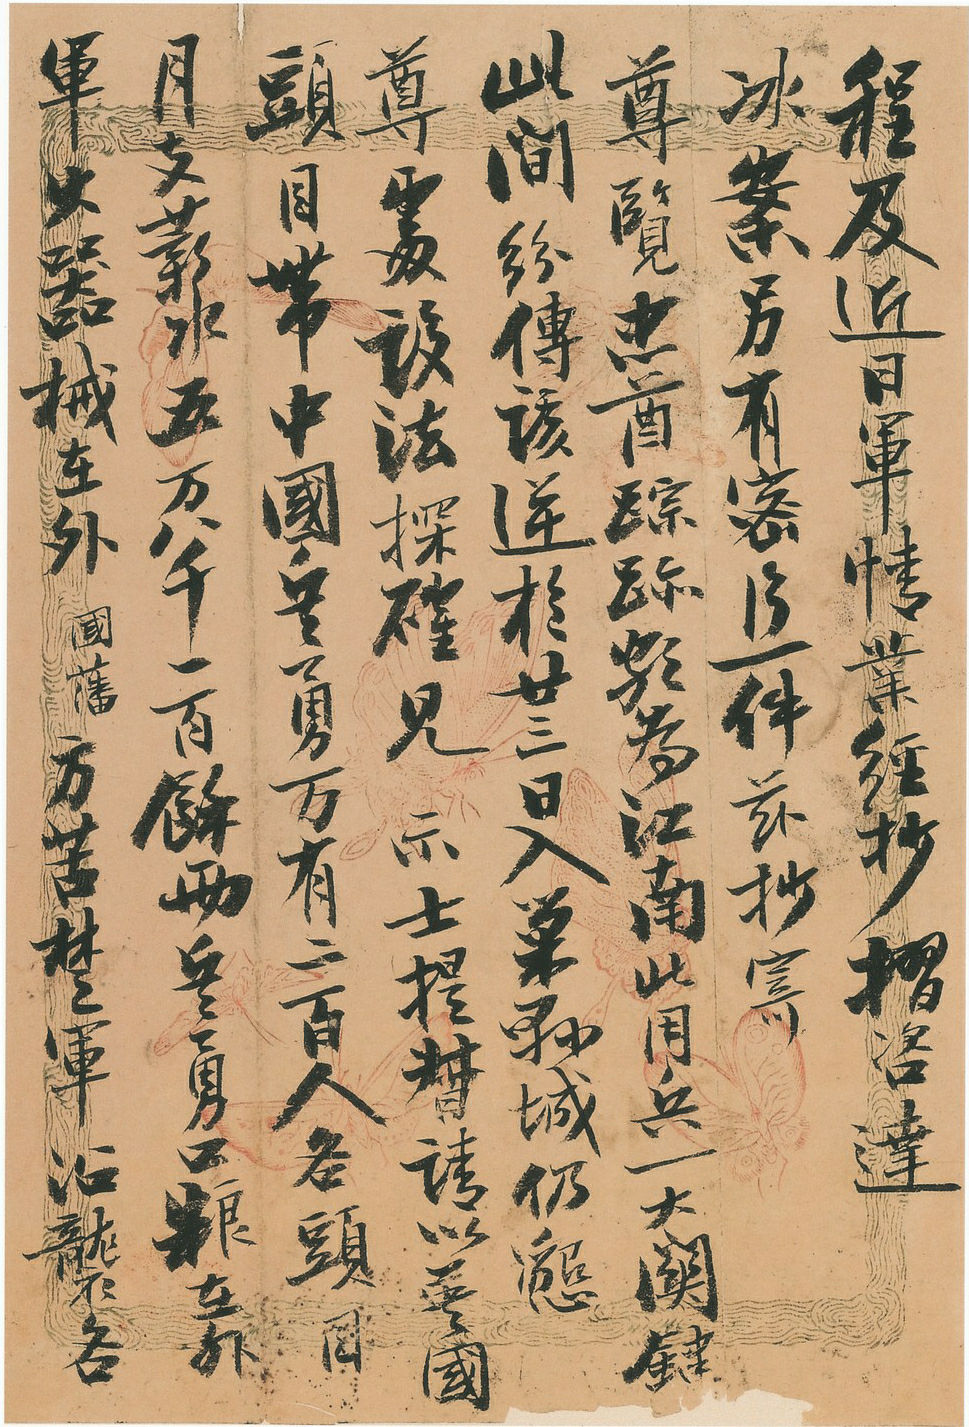 程及近日軍情業經抄摺咨達
冰案另有密片一件茲抄寄
尊覽忠酋踪跡㪇為江南此用兵一大關鍵
此間紛傳該逆於廿三日入巢縣城仍懇
尊處設法探確見示士提督請以英國
頭目帶中國兵勇万有二百人各頭目
月支薪水五万八千一百餘兩兵勇口糧在外
軍火器械在外國藩方苦楚軍沾襲不各